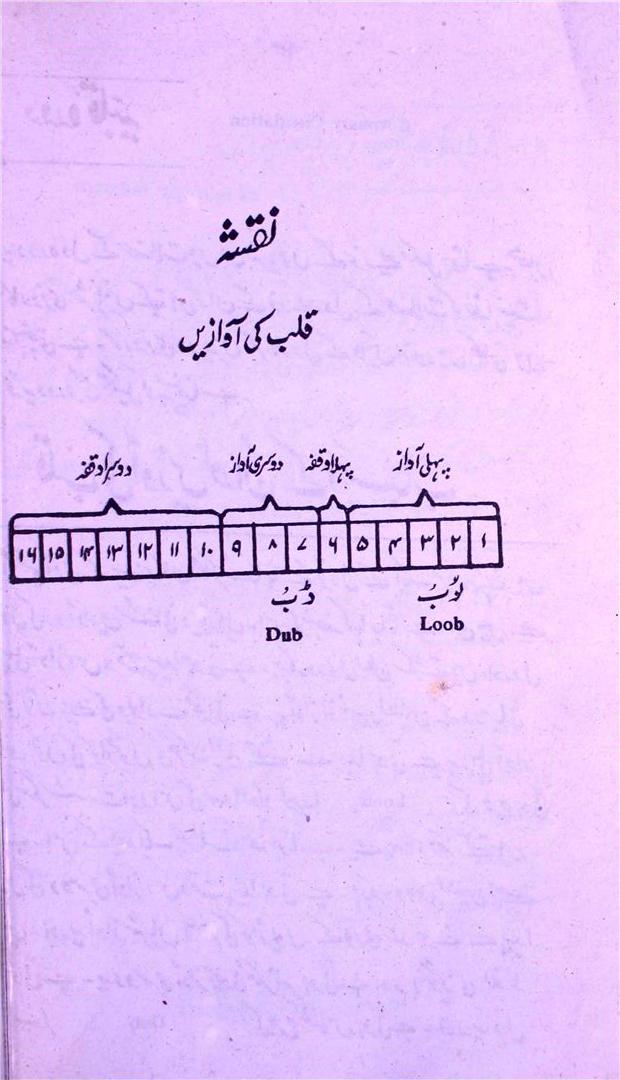 نقشہ
قلب کی آوازیں
پہلی آواز پہلا وقفہ دوسری آواز دوسرا وقفہ
۱ ۲ ۳ ۴ ۵ ۶ ۷ ۸ ۹ ۱۰ ۱۱ ۱۲ ۱۳ ۱۴ ۱۵ ۱۶
لُوبُ ڈبُ
Loob Dub